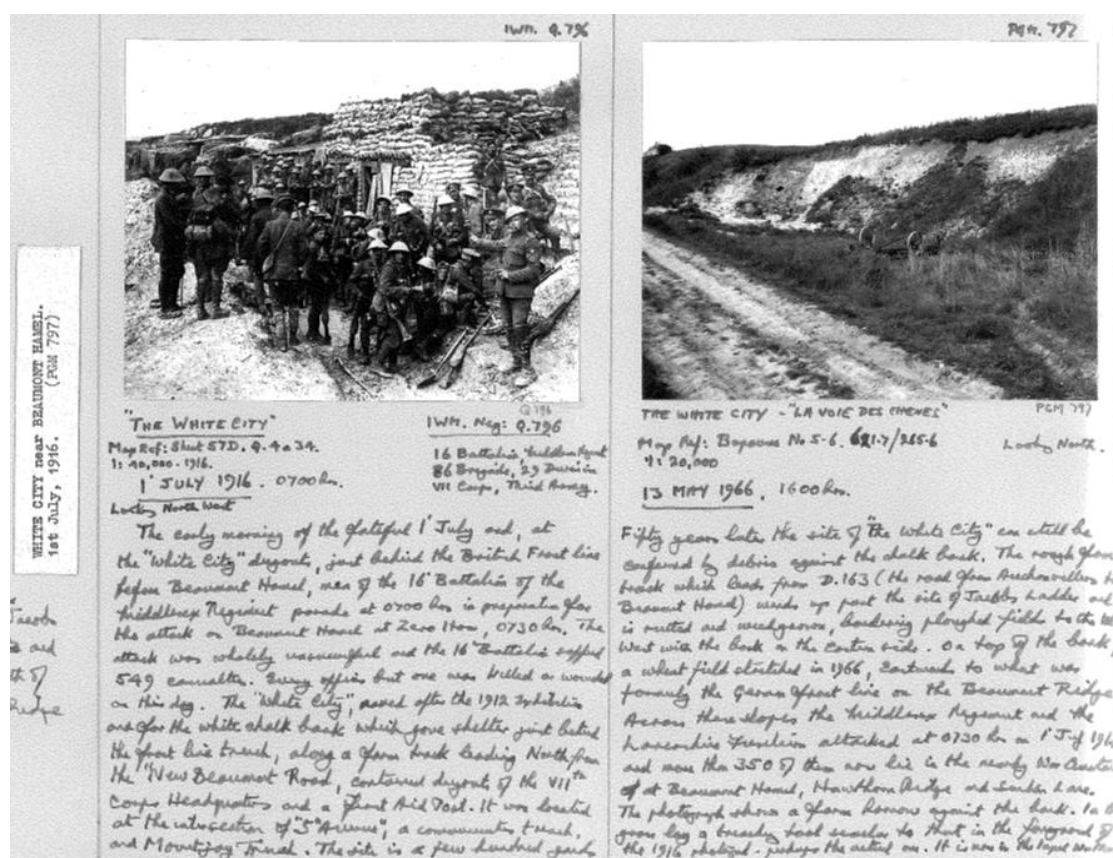 IWM. Q.796
"THE WHITE CITY"
Q 796
IWM. Neg: Q.796
Map Ref: Sheet 57D. Q.4a 34.
1: 40,000. 1916.
16 Battalion, Middlesex Regent
86 Brigade, 29 Division
VII Corps, Third Army.
1' JULY 1916. 0700 hrs.
Looking North West
The early morning of the fateful 1' July and, at
the "White City" dugouts, just behind the British Front line
before Beaumont Hamel, men of the 16 Battalion of the
Middlesex Regiment parade at 0700 hrs in preparation for
the attack on Beaumont Hamel at Zero Hour, 0730 hrs. The
attack was wholely unsuccessful and the 16 Battalion suffered
549 casualties. Every officer but one was killed or wounded
on this day. The "White City", named after the 1912 Exhibition
and for the white chalk bank which gave shelter just behind
the front line trench, along a farm track leading North from
the "New Beaumont Road, contained dugouts of the VIIth
Corps Headquarters and a First Aid Post. It was located
at the intersection of "5" Avenue", a communication trench,
and Mountjoy Trench. The site is a few hundred yards
PGM. 797
THE WHITE CITY - "LA VOIE DES CHENES"
PGM 797
Map Ref: Bapaume No 5-6. 621.7/265.6
1: 20,000
Looking North.
13 MAY 1966. 1600 hrs.
Fifty years later the site of "The White City" can still be
confirmed by debris against the chalk bank. The rough farm
track which leads from D.163 (the road from Auchonvillers to
Beaumont Hamel) winds up past the site of Jacob's Ladder and
is rutted and weedgrown, bordering ploughed fields to the
West with the bank on the Eastern side. On top of the bank,
a wheat field stretched in 1966, Eastwards to what was
formerly the German front line on the Beaumont Ridge
Across these slopes the Middlesex Regiment and the
Lancashire Fusiliers attacked at 0730 hrs on 1' July
and more than 350 of them now lie in the nearby War
at Beaumont Hamel, Hawthorn Ridge and Sunken Lane.
The photograph shows a farm harrow against the bank. In
grass lay a breaching tool similar to that in the foreground
the 1916 photograph - perhaps the actual one. It is now in the
WHITE CITY near BEAUMONT HAMEL.
1st July, 1916. (PGM 797)
Jacob
and
of
Ridge